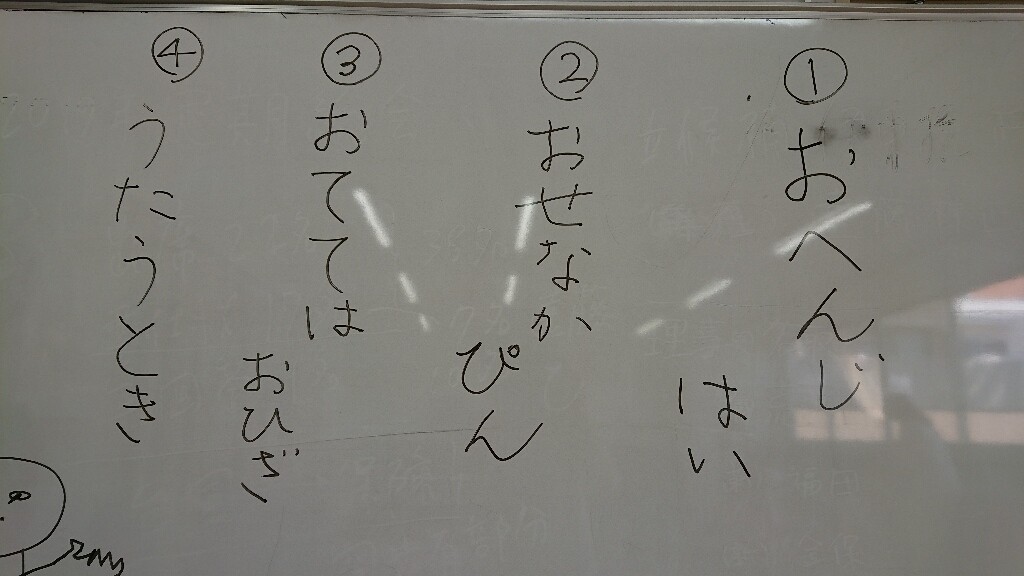 ① おへんじ
はい
② おせなか
ぴん
③ おてては
おひざ
④ うたうとき